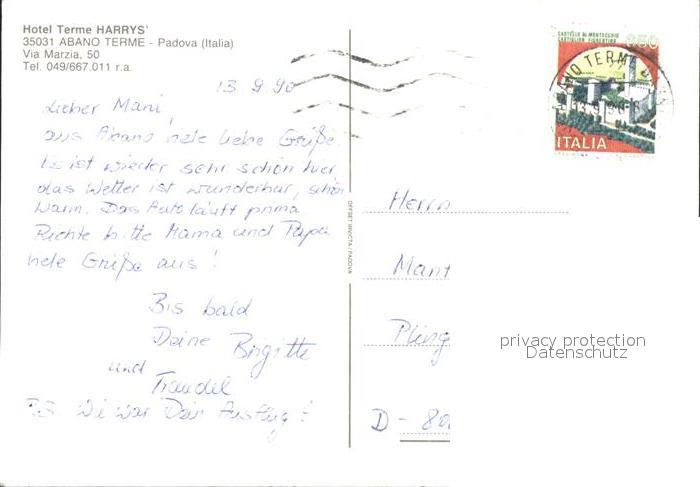 Hotel Terme HARRYS'
35031 ABANO TERME - Padova (Italia)
Via Marzia, 50
Tel. 049/667.011 r.a.
13.9.90
Lieber Mani,
aus Abano viele liebe Grüße.
Es ist wieder sehr schön hier,
das Wetter ist wunderbar, schön
warm. Das Auto läuft prima
Richte bitte Mama und Papa
viele Grüße aus!
Bis bald
Deine Brigitte
und
Traudel
PS. Wie war Dein Ausflug?
OFFSET INVICTA / PADOVA
CASTELLO DI MONTECCHIO
CASTIGLION FIORENTINO
850
ABANO TERME
13.9.90
ITALIA
Herrn
Man
Pling
D - 80
privacy protection
Datenschutz